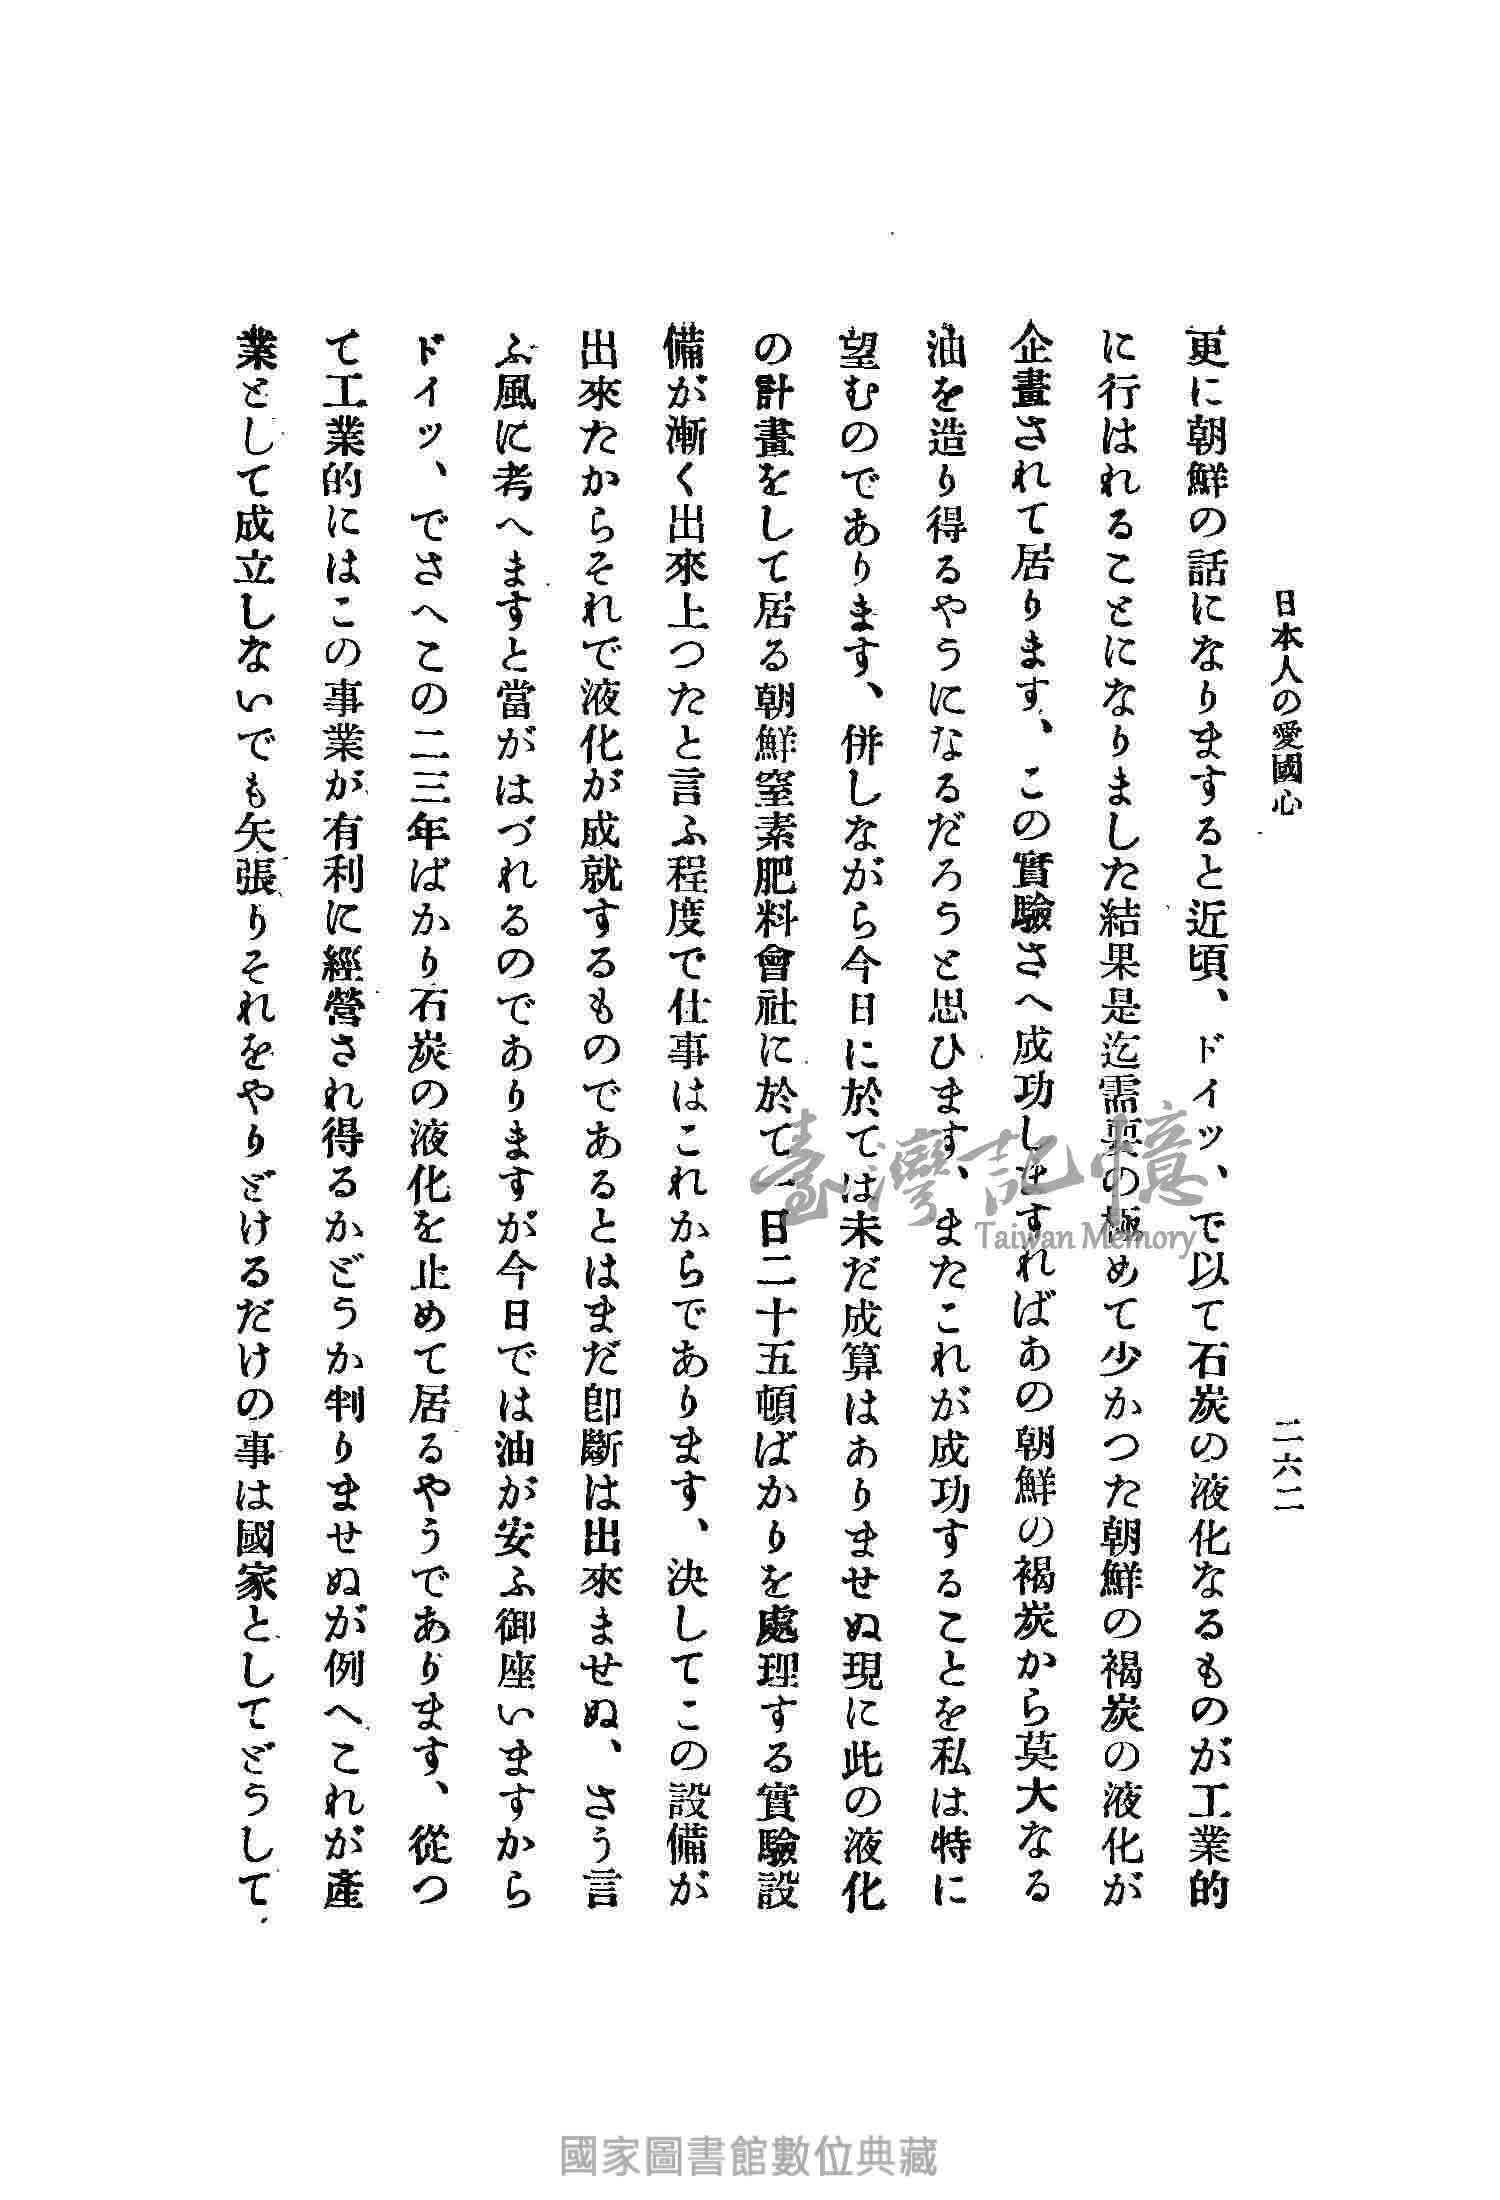 日本人の愛國心
二六二
更に朝鮮の話になりますると近頃、ドイッ、で以て石炭の液化なるものが工業的
に行はれることになりました結果是迄需要の極めて少かつた朝鮮の褐炭の液化が
企畫されて居ります、この實驗さへ成功しますればあの朝鮮の褐炭から莫大なる
油を造り得るやうになるだろうと思ひます、またこれが成功することを私は特に
望むのであります、併しながら今日に於ては未だ成算はありませぬ現に此の液化
の計畫をして居る朝鮮窒素肥料會社に於て一日二十五頓ばかりを處理する實驗設
備が漸く出來上つたと言ふ程度で仕事はこれからであります、決してこの設備が
出來たからそれで液化が成就するものであるとはまだ卽斷は出來ませぬ、さう言
ふ風に考へますと當がはづれるのでありますが今日では油が安ふ御座いますから
ドイッ、でさへこの二三年ばかり石炭の液化を止めて居るやうであります、從つ
て工業的にはこの事業が有利に經營され得るかどうか判りませぬが例へこれが產
業として成立しないでも矢張りそれをやりどけるだけの事は國家としてどうして
臺灣記憶
Taiwan Memory
國家圖書館數位典藏